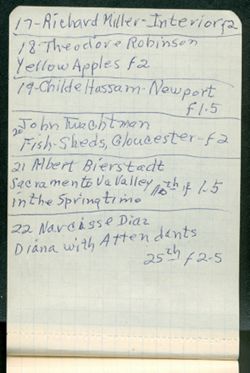 17-Richard Miller-Interior f2
18-Theodore Robinson
Yellow Apples f2
19-Childe Hassam-Newport
f1.5
20 John Twachtman
Fish-Sheds, Gloucester-f2
21 Albert Bierstadt
Sacramento Va Valley f1.5
in the Springtime
22 Narcisse Diaz
Diana with Attendants
25th f2.5